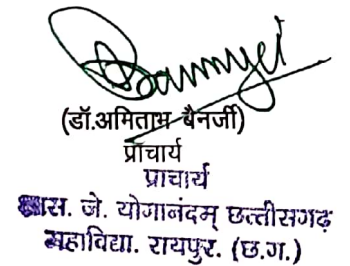 (डॉ.अमिताभ बैनर्जी)
प्राचार्य
प्राचार्य
शास. जे. योगानंदम् छत्तीसगढ़
महाविद्या. रायपुर. (छ.ग.)